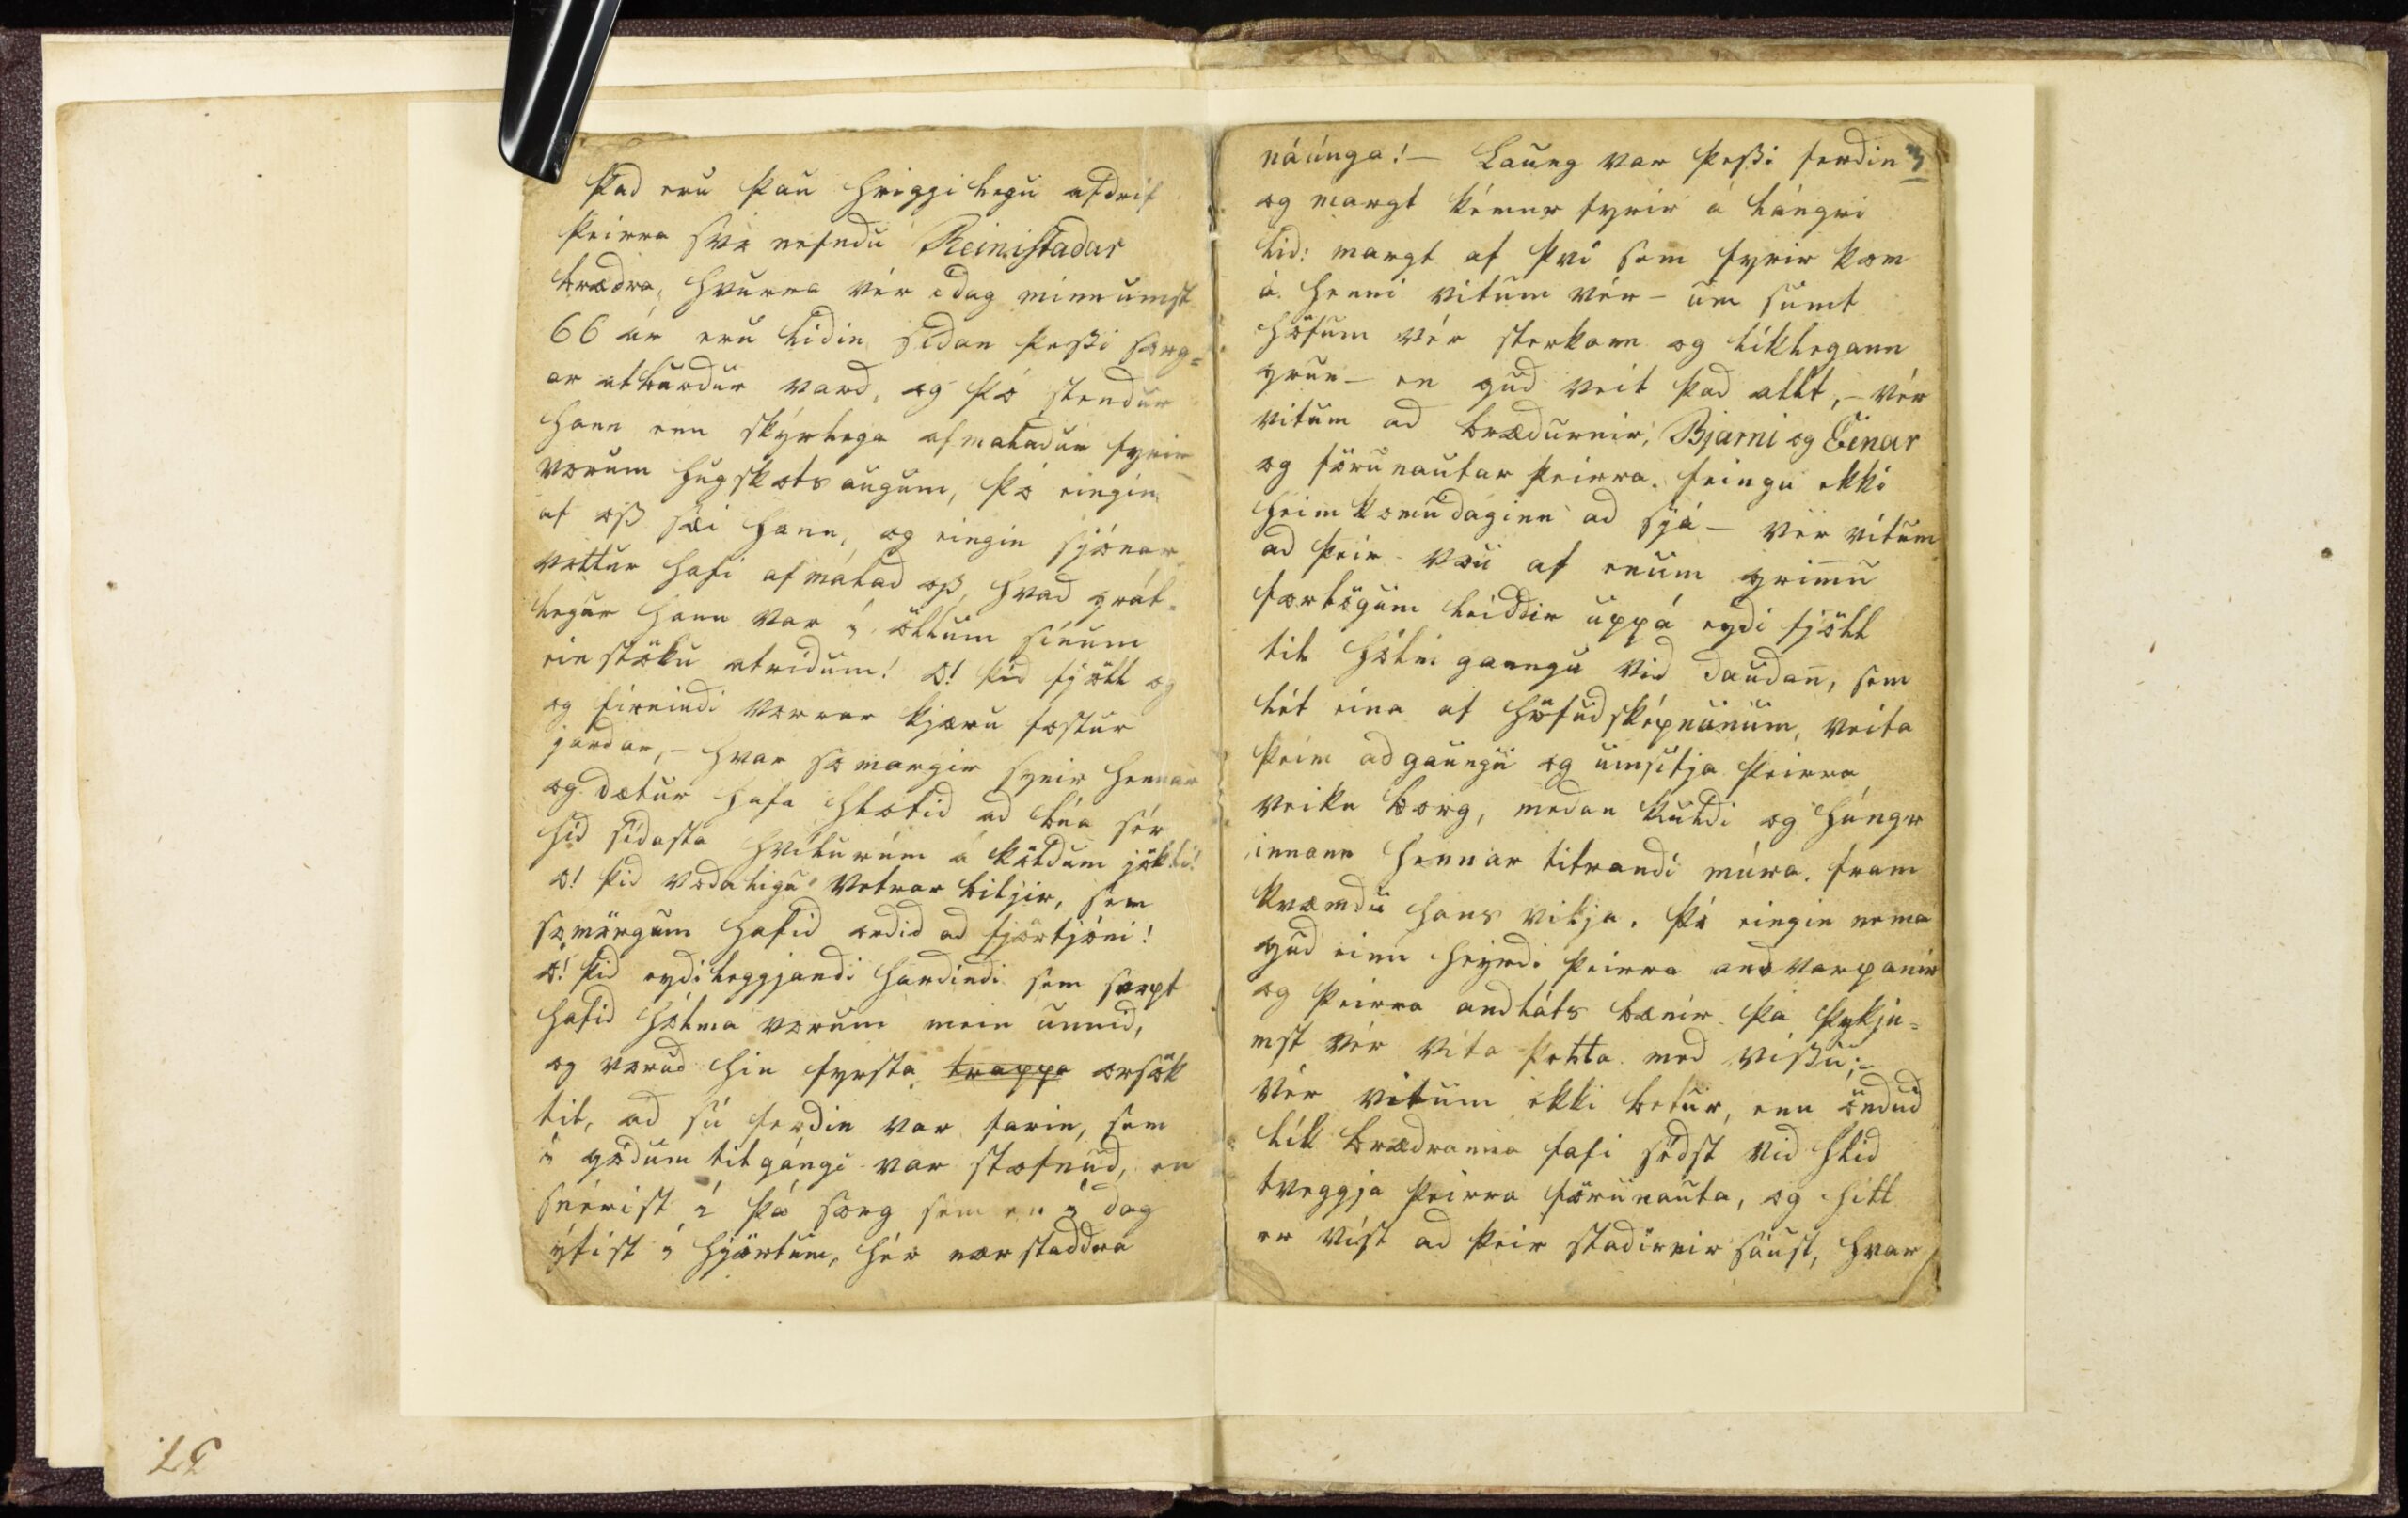 Það eru þau hriggilegu afdrif
þeirra svo nefndu Reinistadar
brædra, hvurra vér ídag minnumst
66 ár eru lidin sídan þessi sorg=
ar atburdur vard, og þó stendur
hann enn skýrlega afmaladur fyrir
vorum hugskots augum, þó eingin
af oss sæi hann, og eingin sjónar
vottur hafi afmálad oss, hvad grát=
legur hann var í öllum sínum
einstöku atridum! O! þid fjöll og
og firnindi vorrar kjæru fostur
jardar, – hvar so margir synir hennar
og dætur hafa hlotid ad búa sér
hid sídasta hvílurúm á köldum jökli!
O! þid vodaligu vetrar biljir, sem
somörgum hafid ordid ad fjörtjóni!
O! þid eydileggjandi hardindi sem svopt
hafid hólma vorum mein unnid,
og vorud hin fyrsta trappa orsök
til, ad sú ferdin var farin, sem
í gódum tilgángi var stofnud, en
snérist í þá sorg sem en í dag
ýfist í hjörtum, hér nær staddra
náúnga! – Laung var þessi ferdin 3
og margt kémur fyrir á lángri
leid: margt af því sem fyrir kom
á henni vitum vér – um sumt
höfum vér sterkann og líklegann
grun – en gud veit það allt, – vér
vitum ad brædurnir, Bjarni og Einar
og förunautar þeirra. feingu ekki
heimkomudaginn ad sjá – vér vitum
ad þeir vóu af enum grimmu
forlögum leiddir uppá eydi fjöll
til hólmgaungu vid daudan, sem
lét eina af höfudsképnunum, veita
þeim adgaungu og umsitja þeirra
veiku borg, medan kuldi og húngr
innann hennar titrandi múra. fram
kvæmdu hans vilja. þó eingin nema
gud einn heyrdi þeirra andvarpanir
og þeirra andláts bænir þá þykju=
mst vér vita þetta med vissu; –
Vér vitum ekki betur, enn önduð
lík brædranna hafi sédst vid hlid
tveggja þeirra förunauta, og hitt
er víst ad þeir stadirnir sáust, hvar
57